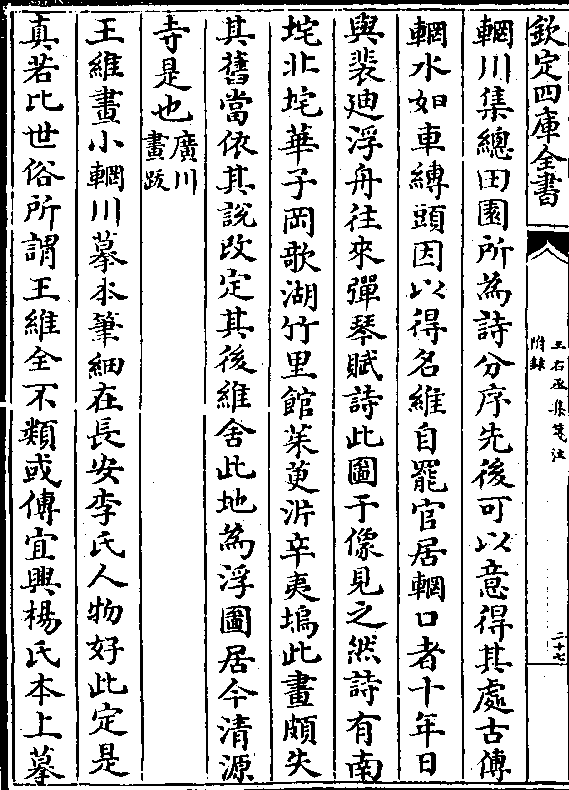 欽定四庫全書
王右丞集箋注
附錄
二十七
輞川集總田園所為詩分序先後可以意得其處古傳
輞水如車縛頭因以得名維自罷官居輞口者十年日
與裴廸浮舟往來彈琴賦詩此圖于像見之然詩有南
垞北垞華子岡歌湖竹里館茱萸沜辛夷塢此畫頗失
其舊當依其說改定其後維舍此地為浮圖居今清源
寺是也廣川
畫跋
王維畫小輞川摹本筆細在長安李氏人物好此定是
真若比世俗所謂王維全不類或傳宜興楊氏本上摹